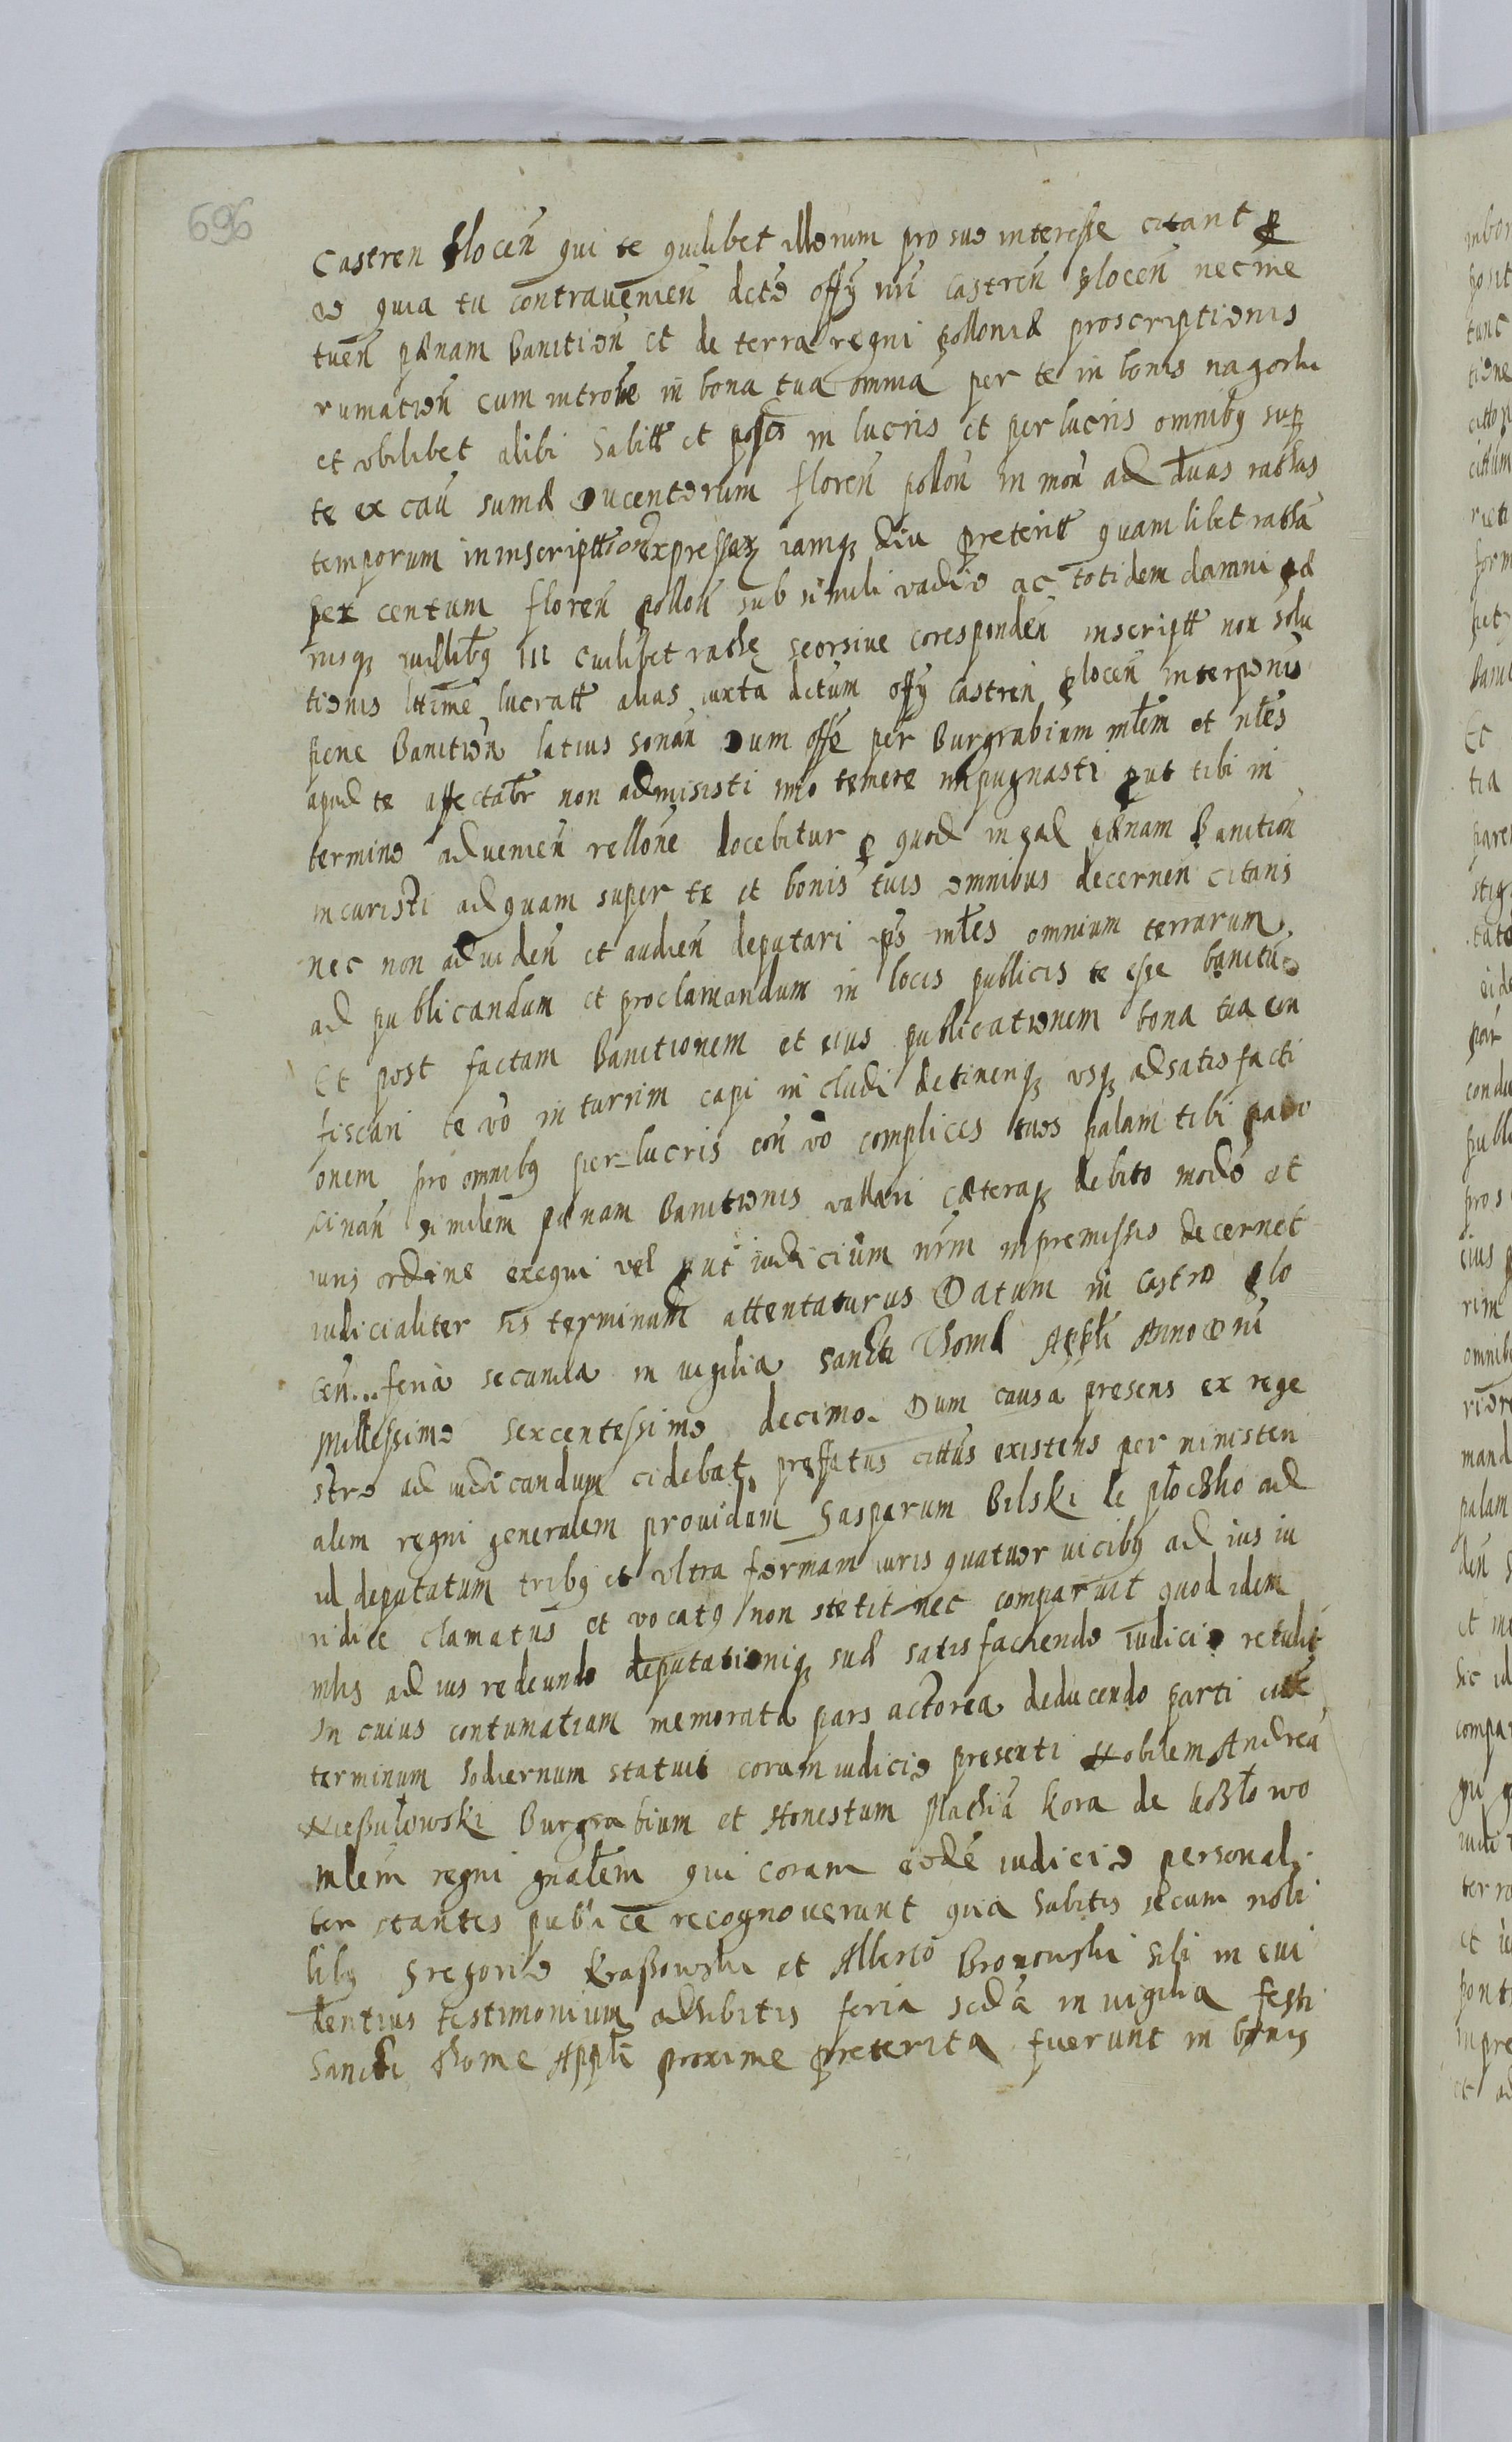 696
Castren Plocen̄ qui te quilibet illorum pro suo interesse citant p
eo quia tu contravenien̄ dcto offy nri Castren̄ Plocen̄ nec me
tuen̄ pænam Banition̄ et de terra regni Polloniæ proscriptionis
rumation̄ cum introne in bona tua omnia per te in bonis nagorki
et vbilibet alibi habitt et poss in lucris et perlucris omnibꝫ sup
te ex caū sumæ Ducentorum floren̄ pollon̄ in mon̄ ad duas rathas
temporum in inscripttion expressaꝝ iamqꝫ diu preteritt quamlibet ratha
per centum floren̄ pollon̄ sub simili vadio ac totidem damni pæ
nisqꝫ similibꝫ cuilibet rathe seorsive coresponden̄ inscriptt non solu
tionis lttime lucratt avas iuxta dctum offy Castren Plocen interponis
pene Banition̄ latius sonan̄ Dum offe per Burgrabium mlem et nles
apud te affectabr non admisisti imo temere impugnasti put tibi in
termino advenien̄ rellone docebitur p quod in eadē pænam Banition
incuristi ad quam super te et bonis tuis omnibus decernen̄ citaris
nec non ad viden̄ et audien̄ deputari ips mles omnium terrarum
ad publicandum et proclamandum in locis publicis te esse banitū
Et post factam Banitionem et eius publicationem bona tua con
fiscari te vo in turrim capi in cludi detinenqꝫ vsqꝫ ad satisfacti
onem pro omnibꝫ perlucris eon̄ vo complices tuos palam tibi patro
cinan̄ similem pænam Banitionis vallari cæteraqꝫ debito modo et
iuris ordine exequi vel put iudicium nrm in premissis decernet
iudicialiter sis terminum attentaturus Datum in Castro Plo
cen̄... feria secunda in vigilia Sancti Thomæ Appli Anno Dni
Millessimo sexcentessimo decimo. Dum causa presens ex rege
stro ad iudicandum cidebat, preffatus cittus existens per ministeri
alem regni generalem providum Gasparum Bilski de płoczko ad
id deputatum tribꝫ et vltra formam iuris quatuor vicibꝫ ad ius iu
ridice clamatus et vocatꝫ non stetit nec comparuit quod idem
mlis ad ius redeundo deputationiqꝫ suæ satisfaciendo iudicio retulit
In cuius contumatiam memorata pars actorea deducendo parti citt
terminum hodiernum statuit coram iudicio presenti Nobilem Andreā
Nießułowski Burgrabium et Honestum Mathiā kora de kozłowo
mlem regni gnalem qui coram eodē iudicio personali
ter stantes publice recognoverunt quia habitis secum nobi
libꝫ Gregorio kraßowski et Alberto Bronowski sibi in evi
dentius testimonium adhibitis feria scda in vigilia festi
Sancti Thome Appli proxime preterita fuerunt in bonis